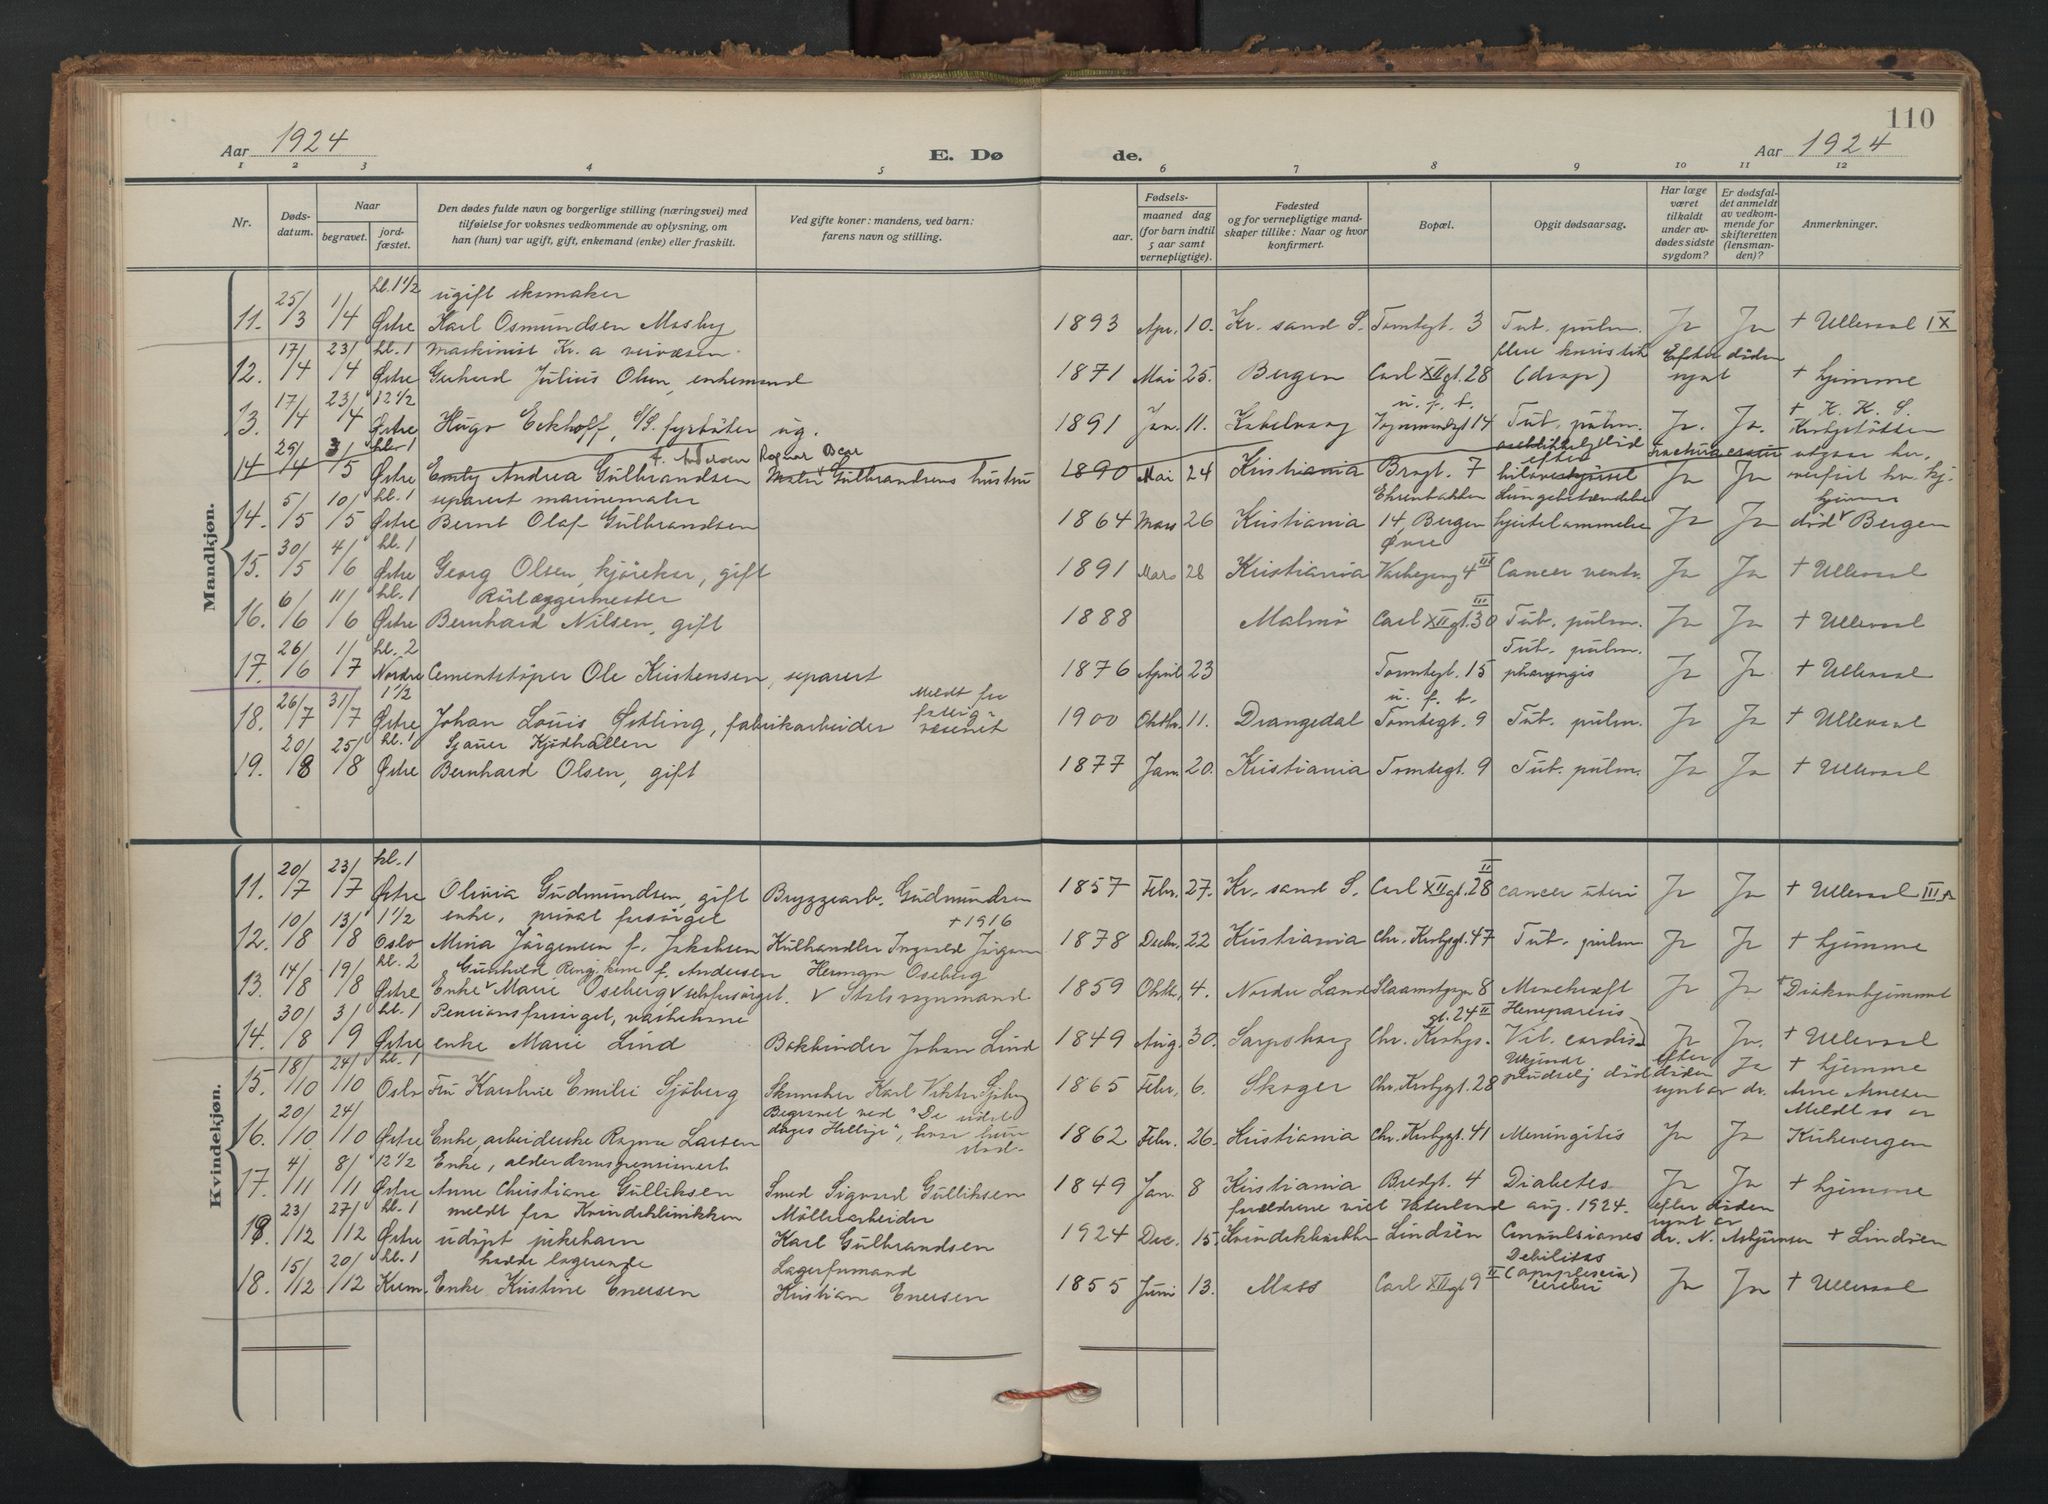 110
Aar 1924
E. Dø
de.
Aar 1924
1 2 3 4 5 6 7 8 9 10 11 12
Nr.
Dødsdatum.
Naar
begravet.
jordfæstet.
Den dødes fulde navn og borgerlige stilling (næringsvei) med
tilføielse for voksnes vedkommende av oplysning, om
han (hun) var ugift, gift, enkemand (enke) eller fraskilt.
Ved gifte koner: mandens, ved barn:
farens navn og stilling.
Fødsels-
aar.
maaned dag
(for barn indtil
5 aar samt
vernepligtige).
Fødested
og for vernepligtige mand-
skaper tillike: Naar og hvor
konfirmert.
Bopæl.
Opgit dødsaarsag.
Har læge
været
tilkaldt
under av-
dødes sidste
sygdom?
Er dødsfal-
det anmeldt
av vedkom-
mende for
skifteretten
(lensman-
den)?
Anmerkninger.
Mandkjøn.
kl. 1 1/2 ugift
11. 25/3 1/4 Østre Karl Osmundsen Mosby 1893 Apr. 10. Kr. sand S. Tomtegt. 3 Tub. pulm. Ja Ja + Ullevaal IX
kl. 1 Maskinist Kr. a veivæsen Efter døden
12. 17/4 23/4 Østre Gerhard Julius Olsen, enkemand 1871 Mai 25. Bergen Carl XII gt. 28 (drap) synt + hjemme
12 1/2 u. f. b. + K. K. S.
13. 17/4 23/4 Østre Hugo Eckhoff, S/S fyrbøter ug. 1891 Jan. 11. Kabelvaag 14 Tub. pulm. Ja. Ja.
kl. 1 f. Andersen Ragnar efter utgaar her,
14 25/4 3/5 Østre Emly Andrea Gulbrandsen Gulbrandsens hustru 1890 Mai 24 Kristiania Brogt. 7 Ja Ja
kl. 1 separert marinemaler Lungebetændelse hjemme
14. 5/5 10/5 Østre Bernt Olaf Gulbrandsen 1864 Mars 26 Kristiania 14, Bergen hjertelammelse Ja Ja død Bergen
kl. 1 Øvre
15. 30/5 4/6 Østre Georg Olsen, kjørekar, gift 1891 Mars 28 Kristiania 4 III Cancer ventr. Ja Ja + Ullevaal
kl. 1 Rørlæggermester
16. 6/6 11/6 Østre Bernhard Nilsen, gift 1888 Malmø Carl XII gt. 30 III Tub. pulm. Ja Ja + Ullevaal
kl. 2 Tub. pulm.
17. 26/6 1/7 Nordre Cementstøper Ole Kristensen, separert 1876 April 23 Tomtegt. 15 pharyngis Ja Ja + Ullevaal
1 1/2 Meldt fra fattigvæsenet u. f. b.
18. 26/7 31/7 Østre Johan Louis Østling, fabrikarbeider 1900 Oktbr. 11. Drangedal Tomtegt. 9 Tub. pulm. Ja Ja + Ullevaal
kl. 1 Sjauer Kjødhallen
19. 20/8 25/8 Østre Bernhard Olsen, gift 1877 Jan. 20. Kristiania Tomtegt. 9 Tub. pulm. Ja Ja + Ullevaal
Kvindekjøn.
kl. 1
11. 20/7 23/7 Østre Olivia Gudmundsen, gift Bryggearb. Gudmundsen 1857 Febr. 27. Kr. sand S. Carl XII gt. 28 II cancer uteri Ja Ja + Ullevaal III
1 1/2 enke, privat forsørget + 1916
12. 10/8 13/8 Oslo Mina Jørgensen f. Jakobsen Kulhandler Ingvald Jørgensen 1878 Decbr. 22 Kristiania Chr. Krohgsgt. 47 Tub. pulm Ja Ja + hjemme
kl. 2 Gunhild f. Andersen Herman Oseberg
13. 14/8 19/8 Østre Enke Marie Oseberg, selvforsørget. 1859 Oktbr. 4. Nordre Land 8 Ja Ja + Diakonhjemmet
kl. 1 Pensionsforsørget, vaskekone gt. 24 II Hemiparesis
14. 30/8 3/9 Østre enke Marie Lind Bokbinder Johan Lind 1849 Aug. 30. Sarpsborg Chr. Krohgs. Vit. cordis Ja Ja. + Ullevaal
kl. 1 Ukjendt efter
15. 18/10 24/10 Oslo Fru Karoline Emilie Sjøberg Karl Viktor Sjøberg 1865 Febr. 6. Skoger Chr. Krohgsgt. 28 pludselig død døden synt av dr. Ja + hjemme
Arne Arnesen
Begravet ved "De sidste dages Hellige", hvor hun stod. Meldt av
16. 20/10 24/10 Østre Enke, arbeiderske Ragna Larsen 1862 Febr. 26. Kristiania Chr. Krohgsgt. 41 Meningitis Ja Ja Kirkevergen
12 1/2 Enke, alderdomspensionert
17. 4/11 8/11 Østre Anne Christiane Gulliksen Smed Sigvard Gulliksen 1849 Jan. 8 Kristiania Bredgt. 4 Diabetes Ja Ja + hjemme
kl. 1 meldt fra Kvindeklinikken Møllerarbeider forældrene viet Vaterland aug. 1924. efter døden synt av
18. 23/12 27/12 Østre udøpt pikebarn Karl Gulbrandsen 1924 Dec. 15. Lindøen Convulsiones dr. N. + Lindøen
kl. 1 Lagerformand Debilitas
18. 15/12 20/12 Krem. Enke Kristine Enersen Kristian Enersen 1855 Juni 13. Moss Carl XII gt 9 II (apoplexia) cerebri Ja Ja + Ullevaal